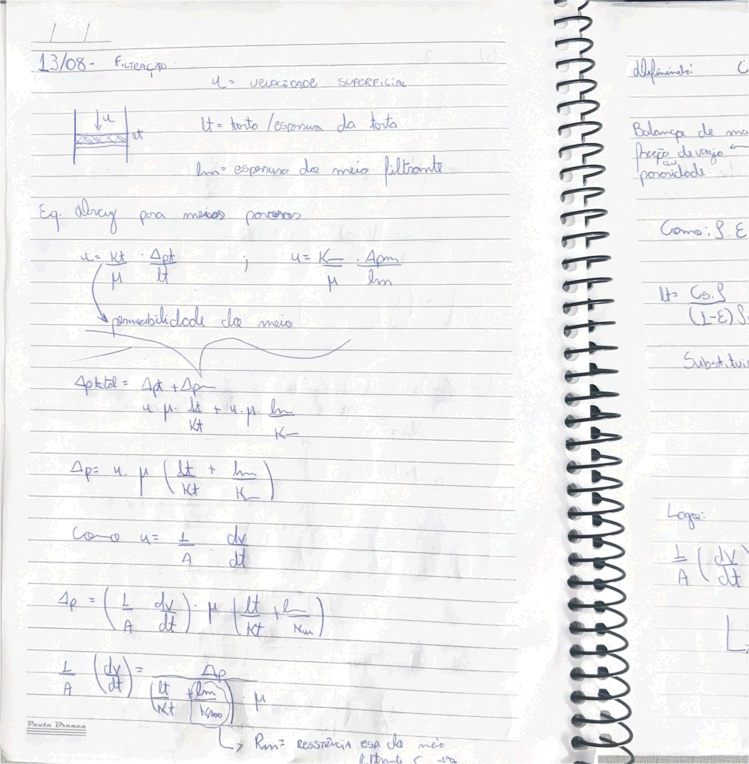 13/08 - FILTRAÇÃO
u = VELOCIDADE SUPERFICIAL
u
lt
lt = torto / espessura da torta
lm = espessura do meio filtrante
Eq. darcy para meios porosos
u = Kt/μ · Δpt/lt ; u = Km/μ · Δpm/lm
permeabilidade do meio
Δptotal = Δpt + Δpm
u · μ · lt/Kt + u · μ · lm/Km
Δp = u · μ (lt/Kt + lm/Km)
Como u = 1/A dv/dt
Δp = (1/A dv/dt) · μ (lt/Kt + lm/Km)
1/A (dv/dt) = Δp / (lt/Kt + lm/Km) · μ
Rm = RESISTÊNCIA esp do meio
filtrante
Pauta Branca
definindo: C
Balanço de
fração de vazio ←
ou
porosidade
Como: ρ. ε
lt = Cs.ρ / (1-ε) ρ
Substitui
Logo:
1/A (dv/dt)